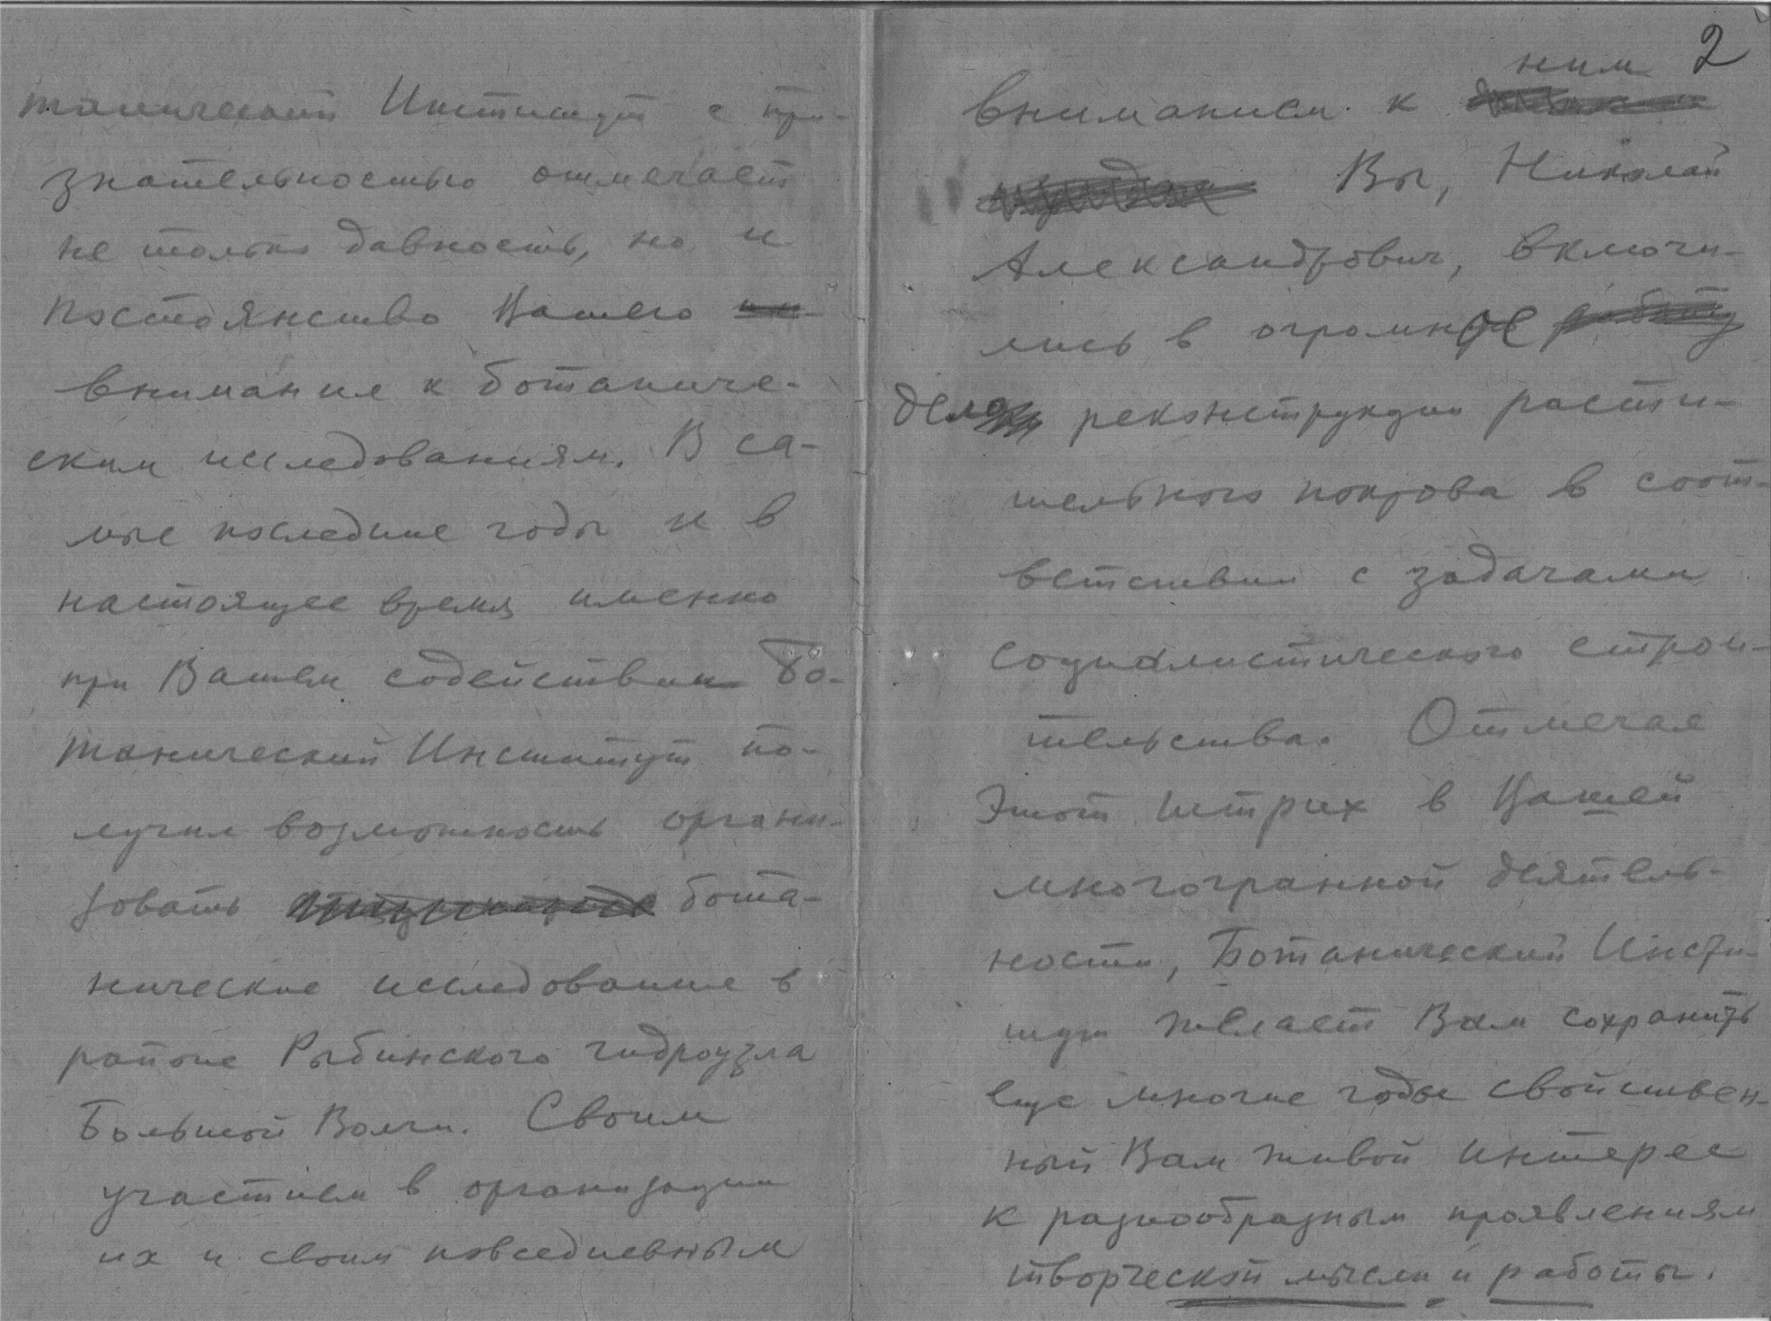 танический Институт с при-
знательностью отмечает
не только давность, но и
постоянство Вашего
внимания к ботаниче-
ским исследованиям. В са-
мые последние годы и в
настоящее время именно
при Вашем содействии Бо-
танический Институт по-
лучил возможность органи-
зовать бота-
нические исследование в
районе Рыбинского гидроузла
Большой Волги. Своим
участием в организации
их и своим повседневным
2
ним
вниманием к
Вы, Николай
Александрович, включи-
лись в огромное работу
дело реконструкции расти-
тельного покрова в соот-
ветствии с задачами
социалистического строи-
тельства. Отмечая
этот штрих в Вашей
многогранной деятель-
ности, Ботанический Инсти-
тут желает Вам сохранить
еще многие годы свойствен-
ный Вам живой интерес
к разнообразным проявлениям
творческой мысли и работы.